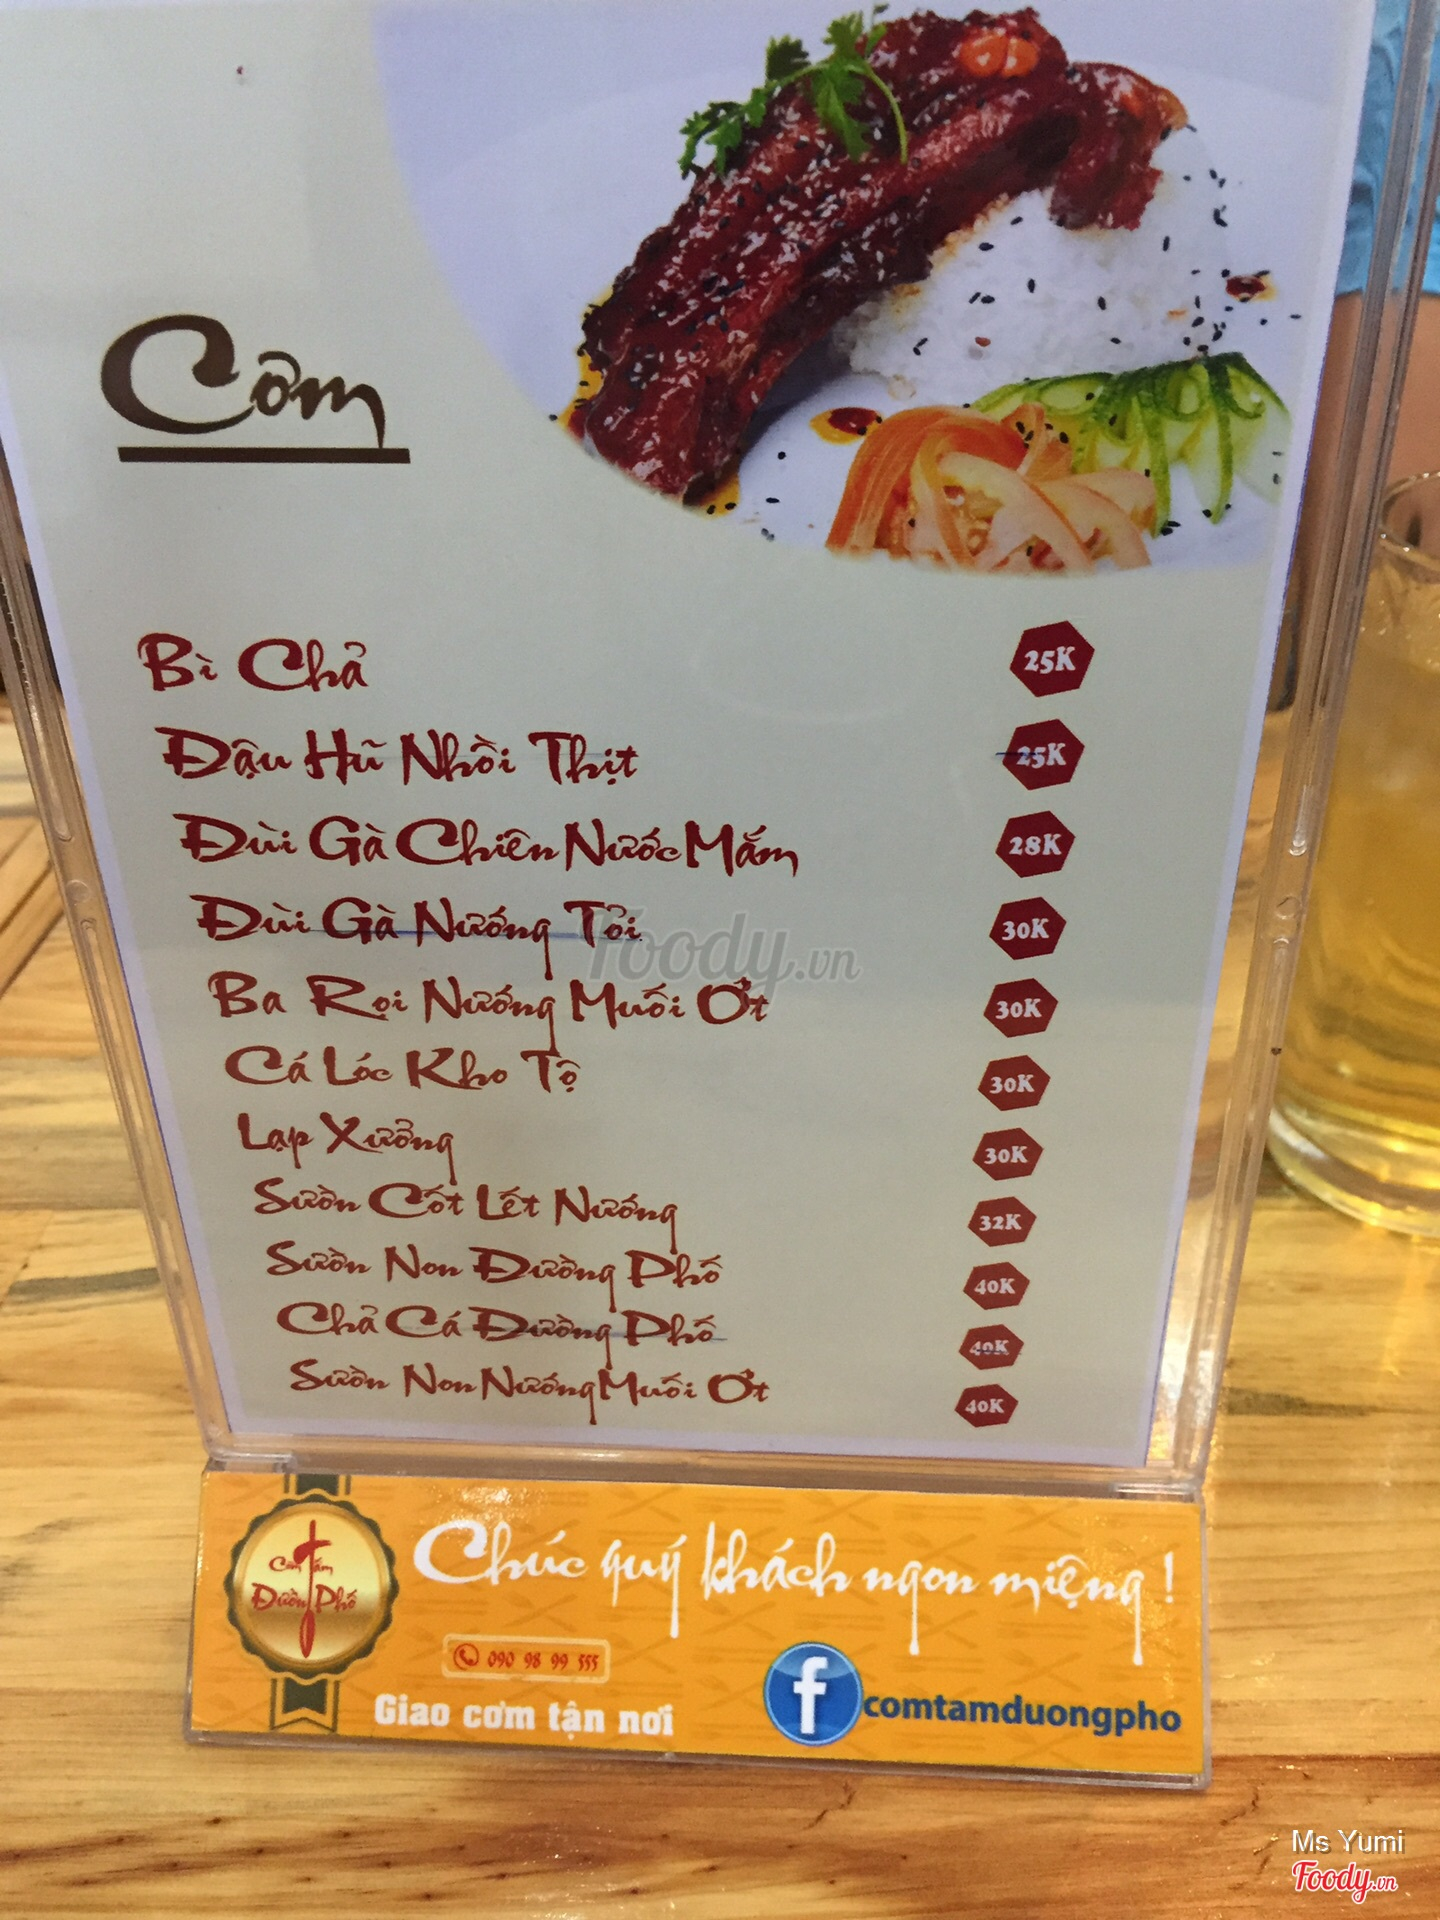 Cơm
Bì Chả 25K
Đậu Hũ Nhồi Thịt 25K
Đùi Gà Chiên Nước Mắm 28K
Đùi Gà Nướng Tỏi 30K
Ba Rọi Nướng Muối Ớt 30K
Cá Lóc Kho Tộ 30K
Lạp Xưởng 30K
Sườn Cốt Lết Nướng 32K
Sườn Non Đường Phố 40K
Chả Cá Đường Phố 40K
Sườn Non Nướng Muối Ớt 40K
Foody.vn
Cơm Tấm
Đường Phố
Chúc quý khách ngon miệng !
090 98 99 555
Giao cơm tận nơi
f comtamduongpho
Ms Yumi
Foody.vn